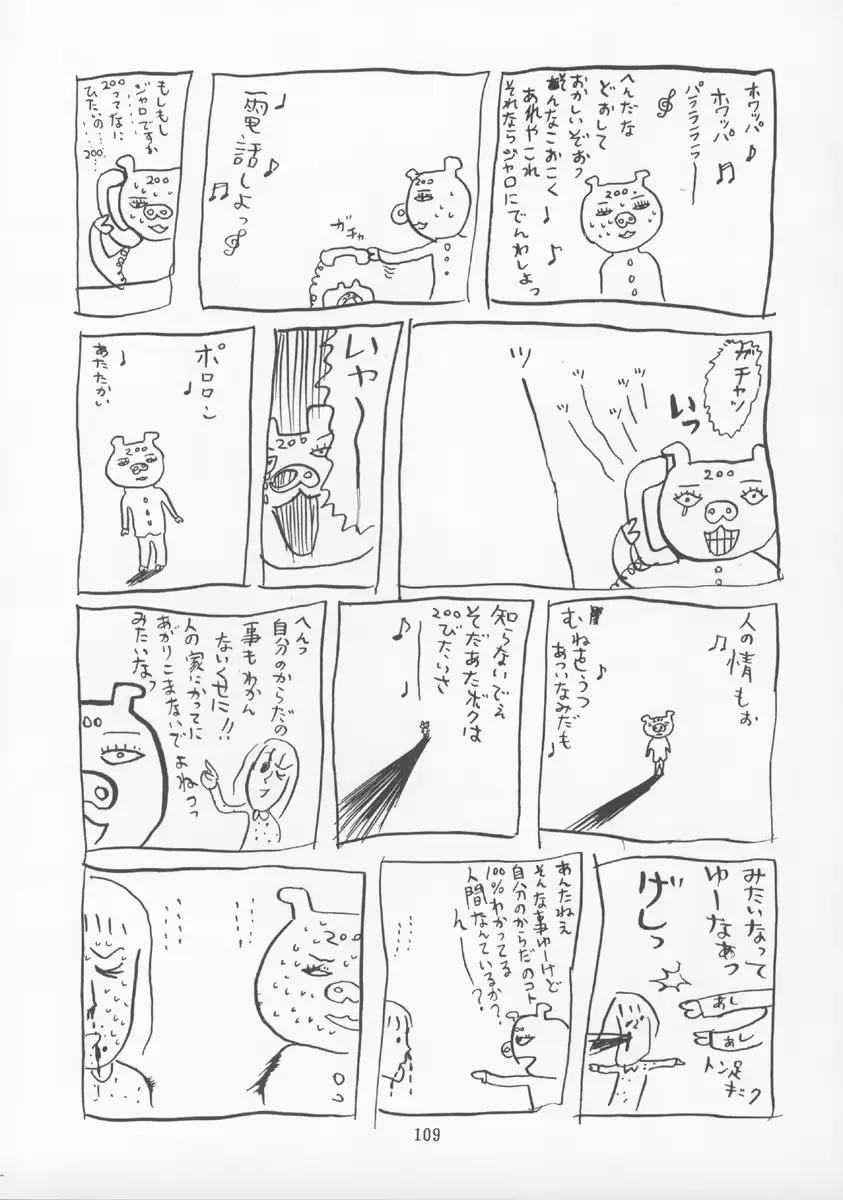 ホワッパ♪
ホワッパ♬
パララララー
へんだな
どおして
おかしいぞおっ
そんなこおこく♩
あれやこれ♪
それならジャロにでんわしよっ
200
♩
電話しよっ
♬
ガチャ
200
もしもし
ジャロですか
200ってなに
ひたいの…200…
200
ガチャッ
いっ
ツ
ツ
ツ
ツ
ツ
200
いやー
200
ポロロン
♪
♩
あたたかい
200
人の情もぉ
♫
むねをうつ
♪
あついなみだも
♪
知らないでぇ
そだあたボクは
200びたいさ
♪
♩
へんっ
自分のからだの
事もわかん
ないくせに!!
人の家にかってに
あがりこまないでよねっっ
みたいなっ
00
みたいなって
ゆーなあっ
げしっ
あし
あし
トン足キック
あんたねえ
そんな事ゆーけど
自分のからだのコト
100%わかってる
人間なんているか?
ん――?
200
109